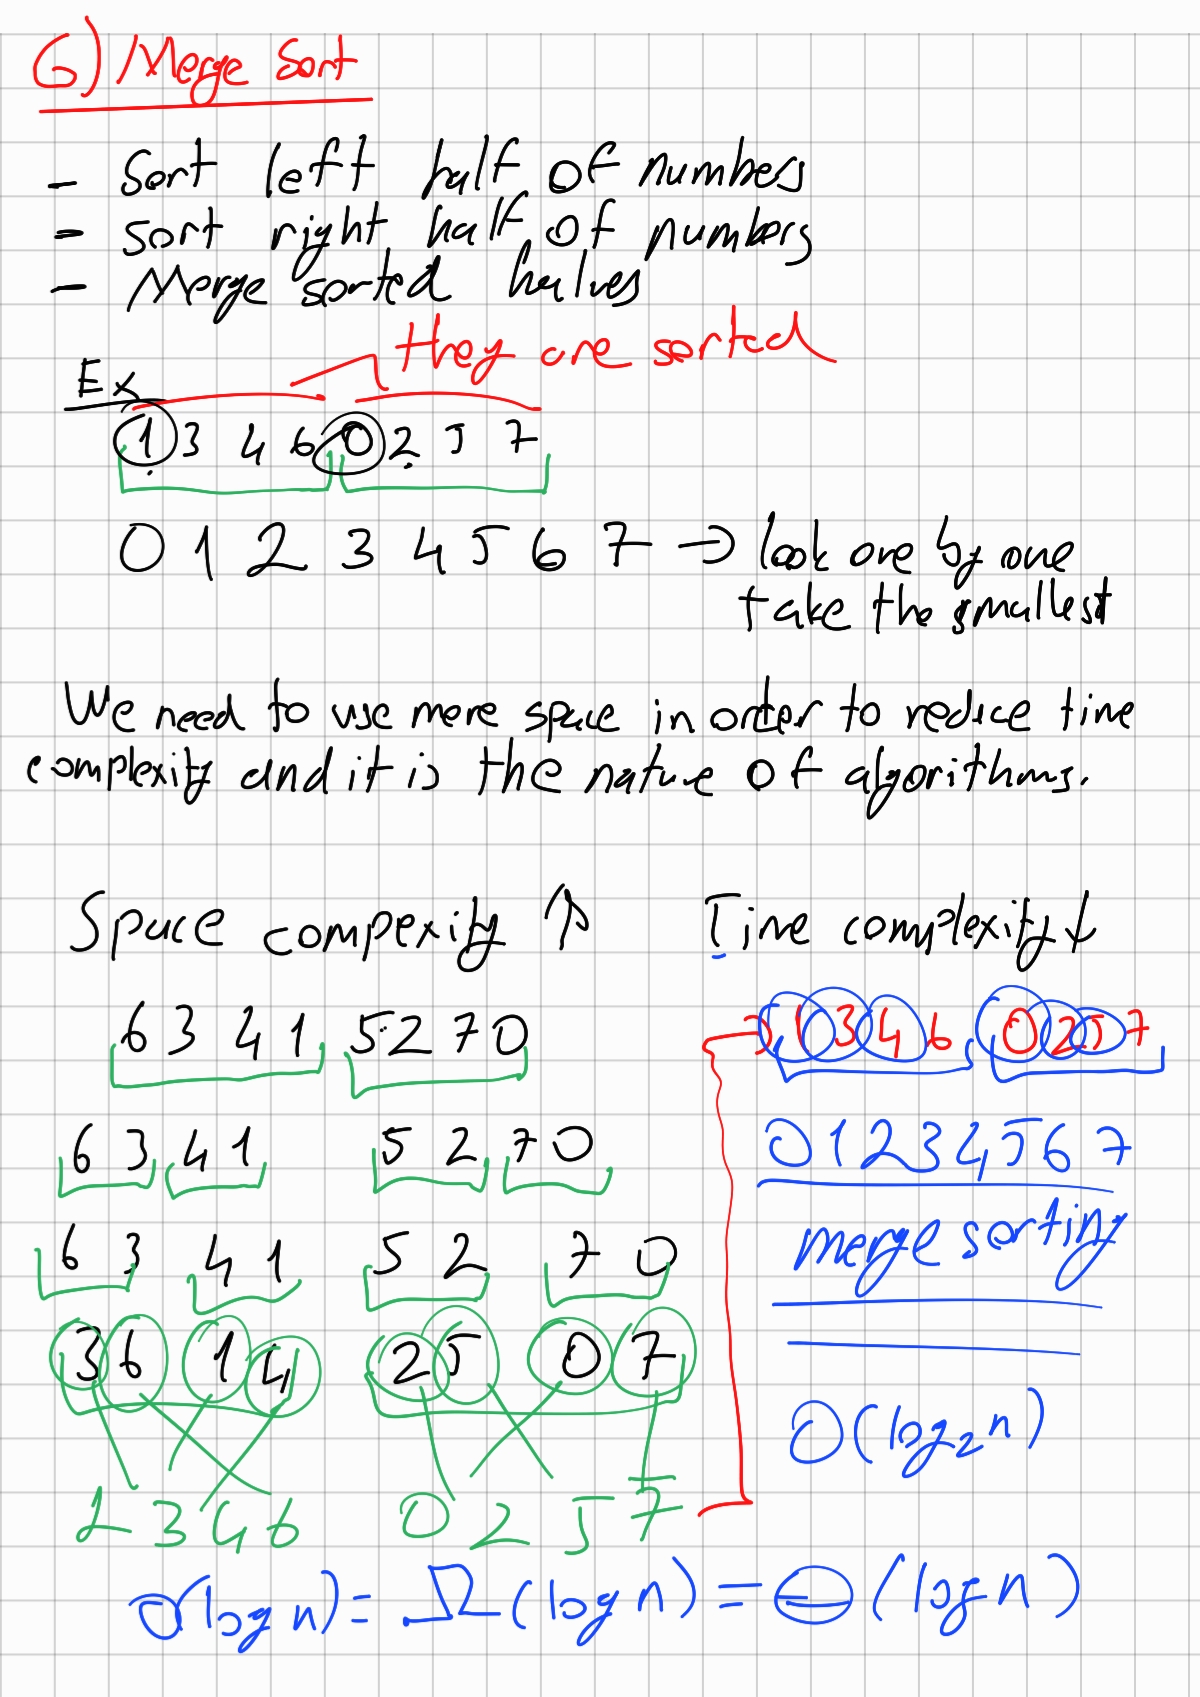 6) Merge Sort
- Sort left half of numbers
- sort right half of numbers
- Merge sorted halves
they are sorted
Ex
1 3 4 6 0 2 5 7
0 1 2 3 4 5 6 7 → look one by one
take the smallest
We need to use more space in order to reduce time
complexity and it is the nature of algorithms.
Space compexity ↑ Time complexity ↓
6 3 4 1 5 2 7 0
6 3 4 1 5 2 7 0
6 3 4 1 5 2 7 0
3 6 1 4 2 5 0 7
1 3 4 6 0 2 5 7
1 3 4 6 0 2 5 7
0 1 2 3 4 5 6 7
merge sorting
O(log₂n)
O(log n) = Ω(log n) = Θ(log n)